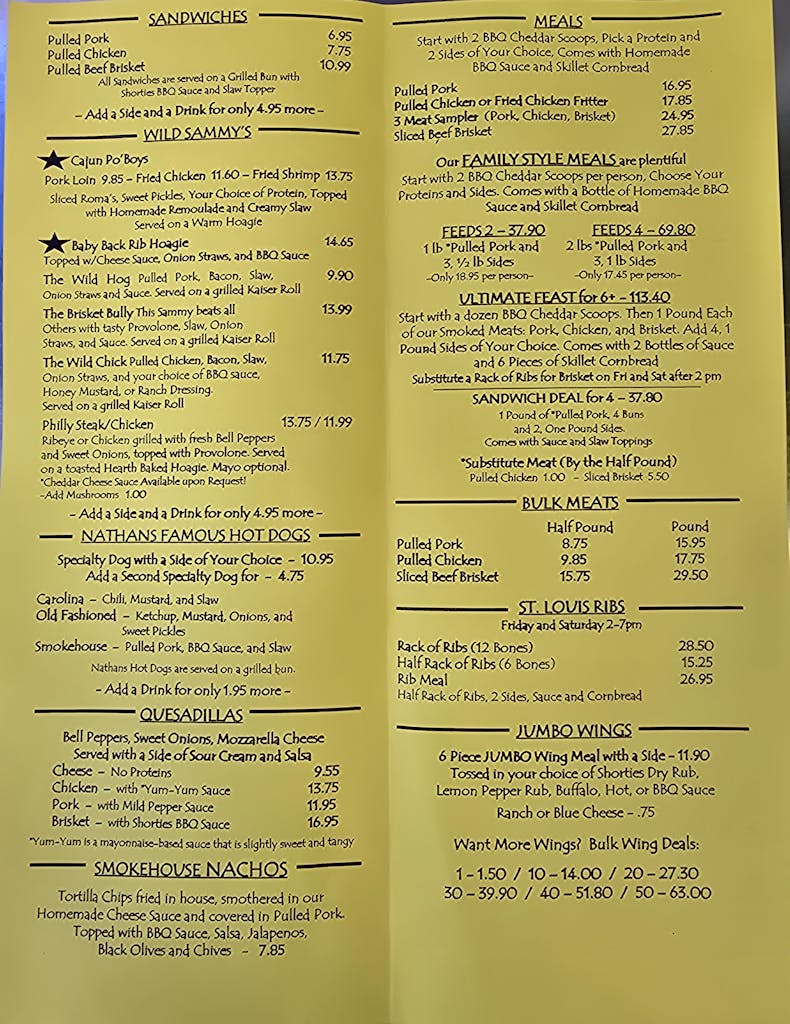 SANDWICHES
Pulled Pork 6.95
Pulled Chicken 7.75
Pulled Beef Brisket 10.99
All Sandwiches are served on a Grilled Bun with
Shorties BBQ Sauce and Slaw Topper
– Add a Side and a Drink for only 4.95 more –
WILD SAMMY'S
Cajun Po'Boys
Pork Loin 9.85 – Fried Chicken 11.60 – Fried Shrimp 13.75
Sliced Roma's, Sweet Pickles, Your Choice of Protein, Topped
with Homemade Remoulade and Creamy Slaw
Served on a Warm Hoagie
Baby Back Rib Hoagie 14.65
Topped w/Cheese Sauce, Onion Straws, and BBQ Sauce
The Wild Hog Pulled Pork, Bacon, Slaw, 9.90
Onion Straws and Sauce. Served on a grilled Kaiser Roll
The Brisket Bully This Sammy beats all 13.99
Others with tasty Provolone, Slaw, Onion
Straws, and Sauce. Served on a grilled Kaiser Roll
The Wild Chick Pulled Chicken, Bacon, Slaw, 11.75
Onion Straws, and your choice of BBQ sauce,
Honey Mustard, or Ranch Dressing.
Served on a grilled Kaiser Roll
Philly Steak/Chicken 13.75 / 11.99
Ribeye or Chicken grilled with fresh Bell Peppers
and Sweet Onions, topped with Provolone. Served
on a toasted Hearth Baked Hoagie. Mayo optional.
*Cheddar Cheese Sauce Available upon Request!
–Add Mushrooms 1.00
– Add a Side and a Drink for only 4.95 more –
NATHANS FAMOUS HOT DOGS
Specialty Dog with a Side of Your Choice – 10.95
Add a Second Specialty Dog for – 4.75
Carolina – Chili, Mustard, and Slaw
Old Fashioned – Ketchup, Mustard, Onions, and
Sweet Pickles
Smokehouse – Pulled Pork, BBQ Sauce, and Slaw
Nathans Hot Dogs are served on a grilled bun.
– Add a Drink for only 1.95 more –
QUESADILLAS
Bell Peppers, Sweet Onions, Mozzarella Cheese
Served with a Side of Sour Cream and Salsa
Cheese – No Proteins 9.55
Chicken – with *Yum-Yum Sauce 13.75
Pork – with Mild Pepper Sauce 11.95
Brisket – with Shorties BBQ Sauce 16.95
*Yum-Yum is a mayonnaise-based sauce that is slightly sweet and tangy
SMOKEHOUSE NACHOS
Tortilla Chips fried in house, smothered in our
Homemade Cheese Sauce and covered in Pulled Pork.
Topped with BBQ Sauce, Salsa, Jalapenos,
Black Olives and Chives – 7.85
MEALS
Start with 2 BBQ Cheddar Scoops, Pick a Protein and
2 Sides of Your Choice, Comes with Homemade
BBQ Sauce and Skillet Cornbread
Pulled Pork 16.95
Pulled Chicken or Fried Chicken Fritter 17.85
3 Meat Sampler (Pork, Chicken, Brisket) 24.95
Sliced Beef Brisket 27.85
Our FAMILY STYLE MEALS are plentiful
Start with 2 BBQ Cheddar Scoops per person, Choose Your
Proteins and Sides. Comes with a Bottle of Homemade BBQ
Sauce and Skillet Cornbread
FEEDS 2 – 37.90 FEEDS 4 – 69.80
1 lb *Pulled Pork and 2 lbs *Pulled Pork and
3, ½ lb Sides 3, 1 lb Sides
–Only 18.95 per person– –Only 17.45 per person–
ULTIMATE FEAST for 6+ – 113.40
Start with a dozen BBQ Cheddar Scoops. Then 1 Pound Each
of our Smoked Meats: Pork, Chicken, and Brisket. Add 4, 1
Pound Sides of Your Choice. Comes with 2 Bottles of Sauce
and 6 Pieces of Skillet Cornbread
Substitute a Rack of Ribs for Brisket on Fri and Sat after 2 pm
SANDWICH DEAL for 4 – 37.80
1 Pound of *Pulled Pork, 4 Buns
and 2, One Pound Sides.
Comes with Sauce and Slaw Toppings
*Substitute Meat (By the Half Pound)
Pulled Chicken 1.00 – Sliced Brisket 5.50
BULK MEATS
Half Pound Pound
Pulled Pork 8.75 15.95
Pulled Chicken 9.85 17.75
Sliced Beef Brisket 15.75 29.50
ST. LOUIS RIBS
Friday and Saturday 2-7pm
Rack of Ribs (12 Bones) 28.50
Half Rack of Ribs (6 Bones) 15.25
Rib Meal 26.95
Half Rack of Ribs, 2 Sides, Sauce and Cornbread
JUMBO WINGS
6 Piece JUMBO Wing Meal with a Side – 11.90
Tossed in your choice of Shorties Dry Rub,
Lemon Pepper Rub, Buffalo, Hot, or BBQ Sauce
Ranch or Blue Cheese – .75
Want More Wings? Bulk Wing Deals:
1 – 1.50 / 10 – 14.00 / 20 – 27.30
30 – 39.90 / 40 – 51.80 / 50 – 63.00